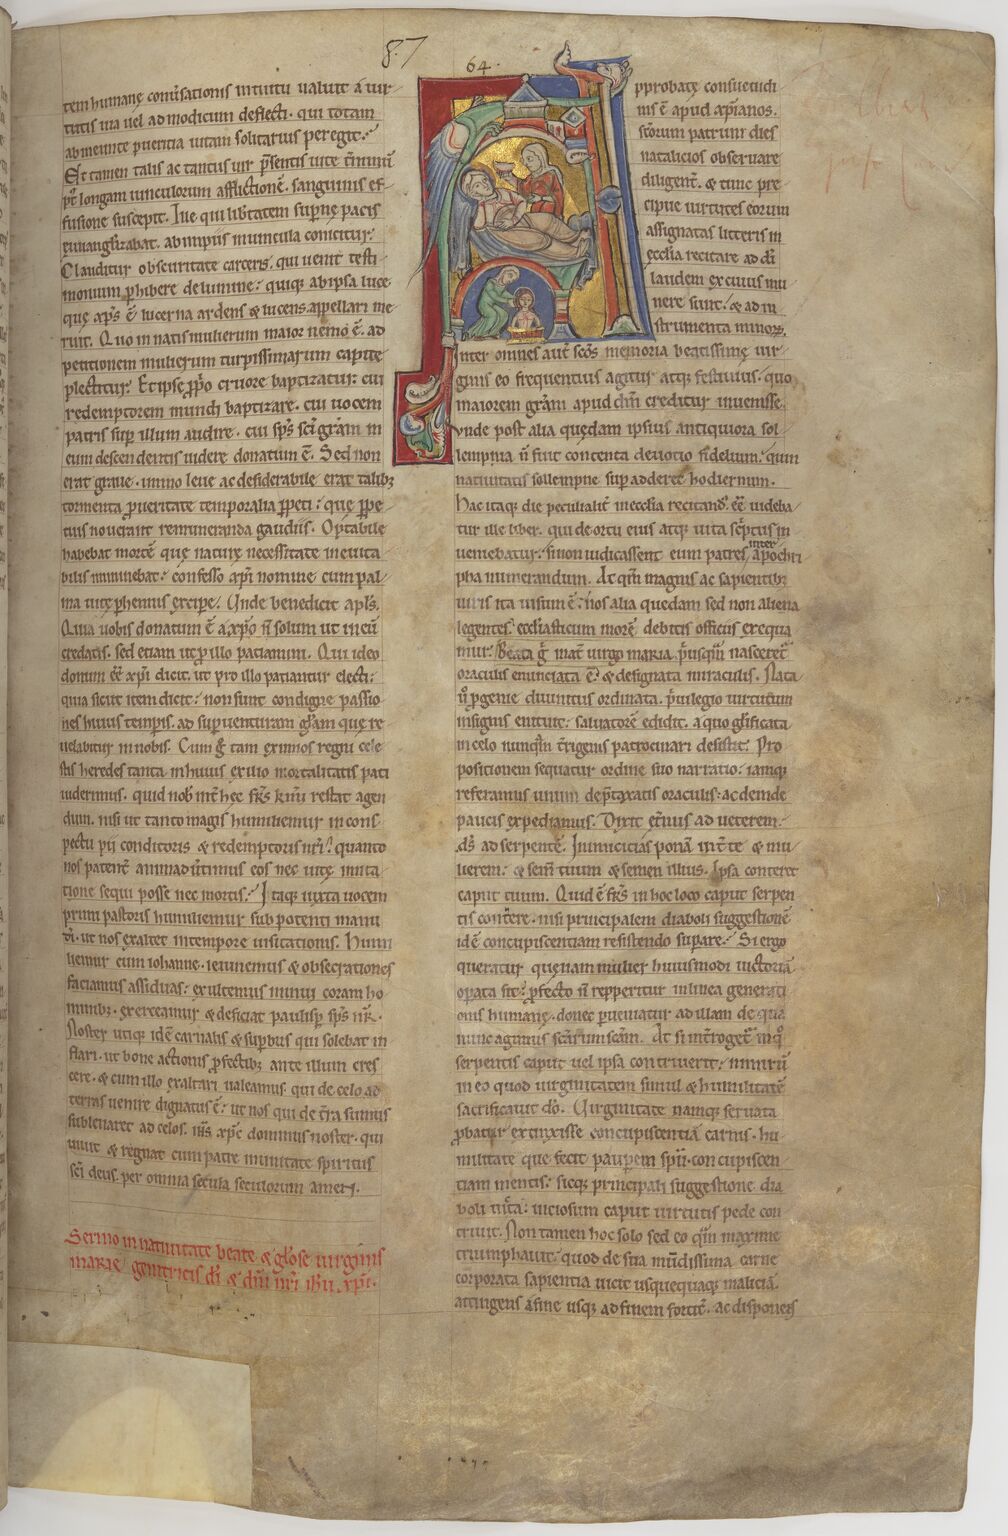 87
64
tem humanę conuersationis intuitu ualuit a uir
tutis uia uel ad modicum deflecti. qui totam
ab ineunte puericia uitam solitarius peregit.
Et tamen talis ac tantus uir p̄sentis uite t̄minū
p̄ longam uinculorum afflictionē. sanguinis ef
fusione suscepit. Ille qui lib̄tatem supernę pacis
euuangl̄izabat. ab impiis in uincula conicitur.
Clauditur obscuritate carceris. qui uenit testi
monium p̄hibere de lumine. quique ab ipsa luce
que xp̄s ē lucerna ardens & lucens appellari me
ruit. Quo in natis mulierum maior nemo ē. ad
petitionem mulierum turpissimarum capite
plectitur. Et ipse p̄p̄o cruore baptizatur. cui
redemptorem mundi baptizare. cui uocem
patris sup̄ illum audire. cui sp̄s sc̄i gr̄am in
eum descendentis uidere donatum ē. Sed non
erat graue. immo leue ac desiderabile erat talibꝫ
tormenta p̄ ueritate temporalia p̄peti. que p̄pe
tuis nouerant remuneranda gaudiis. Optabile
habebat mortē que naturę necessitate ineuita
bilis imminebat. confesso xp̄i nomine cum pal
ma uitę p̄hennis excipe. Unde benedicit apl̄s.
Quia uobis donatum ē a xp̄o n̄ solum ut in eū
credatis. sed etiam ut p̄ illo paciamini. Qui ideo
donum eē xp̄i dicit. ut pro illo patiantur electi.
quia sicut item dicit. non sunt condigne passio
nes huius temp̄is. ad sup̄uenturam gl̄am que re
uelabitur in nobis. Cum ḡ tam eximios regni cele
stis heredes tanta in huius exilio mortalitatis pati
uiderimus. quid nob̄ int̄ hec fr̄s k̄mi restat agen
dum. nisi ut tanto magis humiliemur in cons
pectu pii conditoris & redemptoris nr̄i. quanto
nos patent̄ animaduertimus eos nec uitę imita
tione sequi posse nec mortis. Itaque iuxta uocem
primi pastoris humiliemur sub potenti manu
di. ut nos exaltet in tempore uisitationis. Humi
liemur cum iohanne. ieiunemus & obsecrationes
faciamus assiduas. exultemus
minibꝫ. exerceamur & deficiat paulisp̄ sp̄s nr̄.
Noster utique idē carnalis & sup̄bus qui solebat in
flari. ut bone actionis p̄fectibꝫ ante illum cres
cere. & cum illo exaltari ualeamus qui de celo ad
terras uenire dignatus ē. ut nos qui de t̄ra sumus
subleuaret ad celos. ih̄s xp̄c dominus noster. qui
uiuit & regnat cum patre in unitate spiritus
sc̄i deus. per omnia secula seculorum amen.
Sermo in natiuitate beate & gl̄ose uirginis
mariae genitricis di & dn̄i nr̄i ihu xp̄i.
Approbate consuetudi
nis ē apud xp̄ianos.
sc̄orum patrum dies
natalicios obseruare
diligent̄. & tunc pre
cipue uirtutes eorum
assignatas litteris in
ecc̄lia recitare ad di
laudem ex cuius mu
nere sunt. & ad in
strumenta minorꝫ.
Inter omnes aut̄ sc̄os memoria beatissimę uir
ginis eo frequentius agitur atque festiuius. quo
maiorem gr̄am apud dm̄ creditur inuenisse.
Unde post alia quędam ipsius antiquiora sol
lempnia n̄ fuit contenta deuotio fidelium. quin
natiuitatis sollempne sup̄adderet hodiernum.
Hac itaque die peculialit̄ in ecc̄lia recitand' eē uideba
tur ille liber. qui de ortu eius atque uita sc̄ptus in
ueniebatur. si non iudicassent eum patres inter apochri
pha numerandum. At qm̄ magnis ac sapientibꝫ
uiris ita uisum ē. nos alia quedam sed non aliena
legentes. eccl̄iasticum morē debitis officiis exequa
mur. Beata ḡ mat̄ uirgo maria p̄usqm̄ nasceret̄
oraculis enunciata ē. & designata miraculis. Nata
ū p̄genie diuinitus ordinata. p̄uilegio uirtutum
insignis enituit. saluatorē edidit. a quo gl̄ificata
in celo nunqm̄ t̄rigenis patrocinari desistit. Pro
positionem sequatur ordine suo narratio. iamque
referamus unum de p̄taxatis oraculis. ac deinde
paucis expediamus. Dixit ad ueterem
ds̄ ad serpentē. Inimicicias ponā int̄ te & mu
lierem. & sem̄ tuum & semen illius. Ipsa conteret
caput tuum. Quid ē fr̄s in hoc loco caput serpen
tis cont̄ere. nisi principalem diaboli suggestionē
idē concupiscentiam resistendo sup̄are. Si ergo
queratur quęnam mulier huiusmodi uictoriā
op̄ata sit. p̄fecto n̄ repperitur in linea generati
onis humanę. donec p̄ueniatur ad illam de qua
nunc agimus sc̄arum sc̄am. At si int̄roget̄ in quo
serpentis caput uel ipsa contriuerit. nimirū
in eo quod uirginitatem simul & humilitatē
sacrificauit do. Uirginitate namque seruata
p̄batur extinxisse concupiscentiā carnis. hu
militate que fecit paup̄em spū. concupiscen
tiam mentis. sicque principali suggestione dia
boli uicta. uiciosum caput uirtutis pede con
triuit. Non tamen hoc solo sed eo qm̄ maxime
triumphauit. quod de sua mūdissima carne
corporata sapientia uicit usquequaque maliciā.
attingens a fine usque ad finem fortit̄. ac disponens